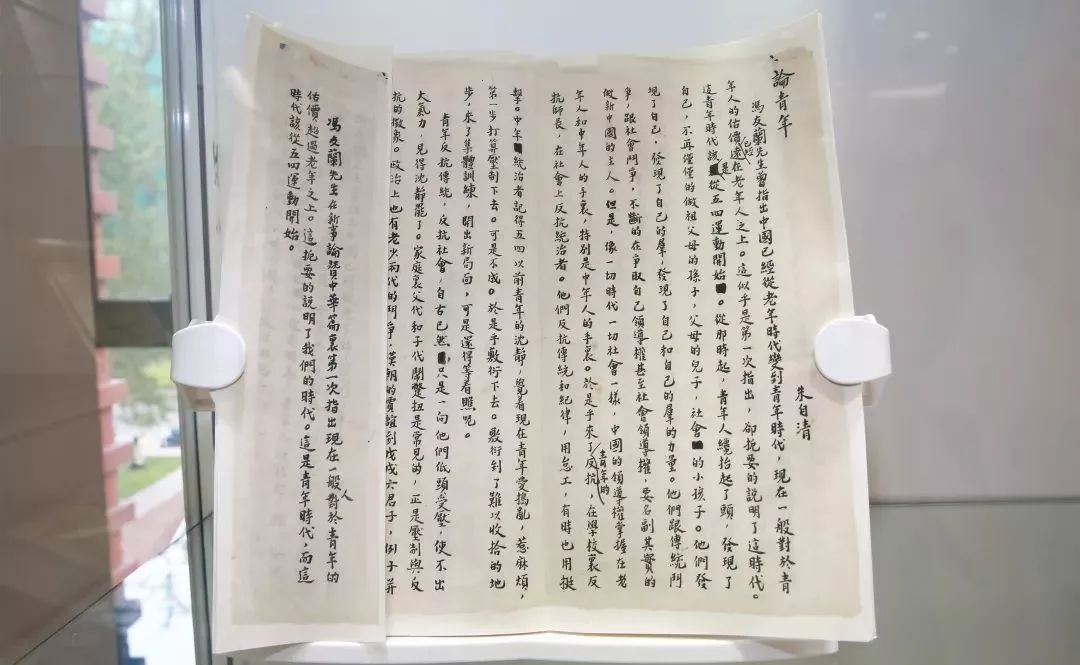 論青年
朱自清
馮友蘭先生曾指出中國已經從老年時代變到青年時代，現在一般對於青
年人的估價已經還在老年人之上。這似乎是第一次指出，卻扼要的說明了這時代。
這青年時代該是從五四運動開始。從那時起，青年人纔抬起了頭，發現了
自己，不再僅僅的做祖父母的孫子，父母的兒子，社會的小孩子。他們發
現了自己，發現了自己的羣，發現了自己和自己的羣的力量。他們跟傳統鬥
爭，跟社會鬥爭，不斷的在爭取自己領導權甚至社會領導權，要名副其實的
做新中國的主人。但是，像一切時代一切社會一樣，中國的領導權掌握在老
年人和中年人的手裏，特別是中年人的手裏。於是乎來了青年的反抗，在學校裏反
抗師長，在社會上反抗統治者。他們反抗傳統和紀律，用怠工，有時也用挺
擊。中年統治者記得五四以前青年的沈靜，覺着現在青年愛搗亂，惹麻煩，
第一步打算壓制下去。可是不成。於是乎敷衍下去。敷衍到了難以收拾的地
步，來了集體訓練，開出新局面，可是還得等着瞧呢。
青年反抗傳統，反抗社會，自古已然，只是一向他們低頭受壓，使不出
大氣力，見得沈靜罷了。家庭裏父代和子代鬧彆扭是常見的，正是壓制與反
抗的徵象。政治上也有老少兩代的鬥爭，漢朝的賈誼到戊戌六君子，例子并
馮友蘭先生在新事論贊中華篇裏第一次指出現在一般人對於青年的
估價超過老年之上。這扼要的說明了我們的時代。這是青年時代，而這
時代該從五四運動開始。